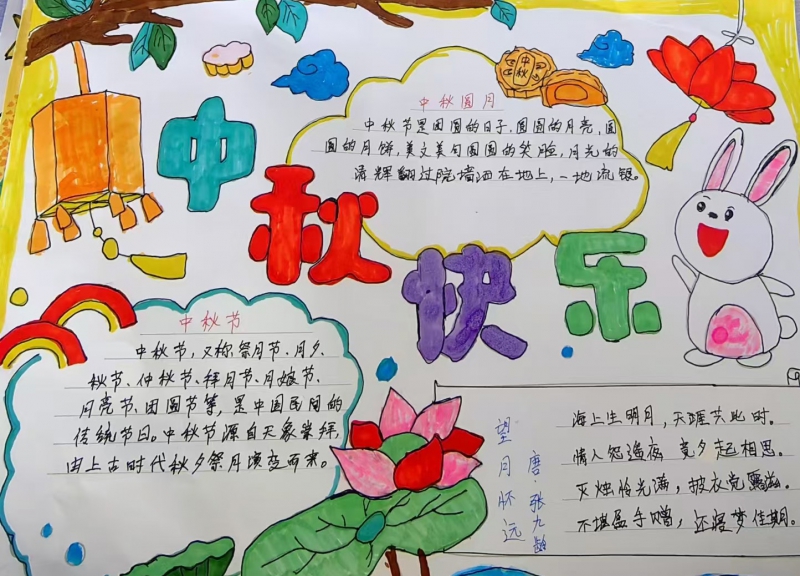 中秋快乐
中秋
中秋圆月
中秋节是团圆的日子,圆圆的月亮,圆
圆的月饼,美文美句圆圆的笑脸,月光的
清辉翻过院墙洒在地上,一地流银。
中秋节
中秋节,又称祭月节、月夕、
秋节、仲秋节、拜月节、月娘节、
月亮节、团圆节等,是中国民间的
传统节日。中秋节源自天象崇拜,
由上古时代秋夕祭月演变而来。
望月怀远
唐·张九龄
海上生明月,天涯共此时。
情人怨遥夜 竟夕起相思。
灭烛怜光满,披衣觉露滋
不堪盈手赠,还寝梦佳期。